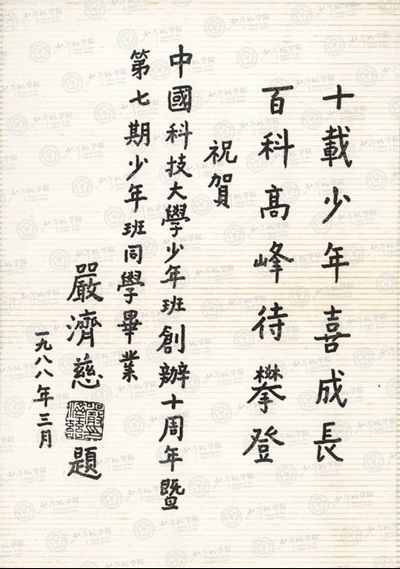 十載少年喜成長
百科高峰待攀登
祝賀
中國科技大學少年班創辦十周年暨
第七期少年班同學畢業
嚴濟慈題
一九八八年三月